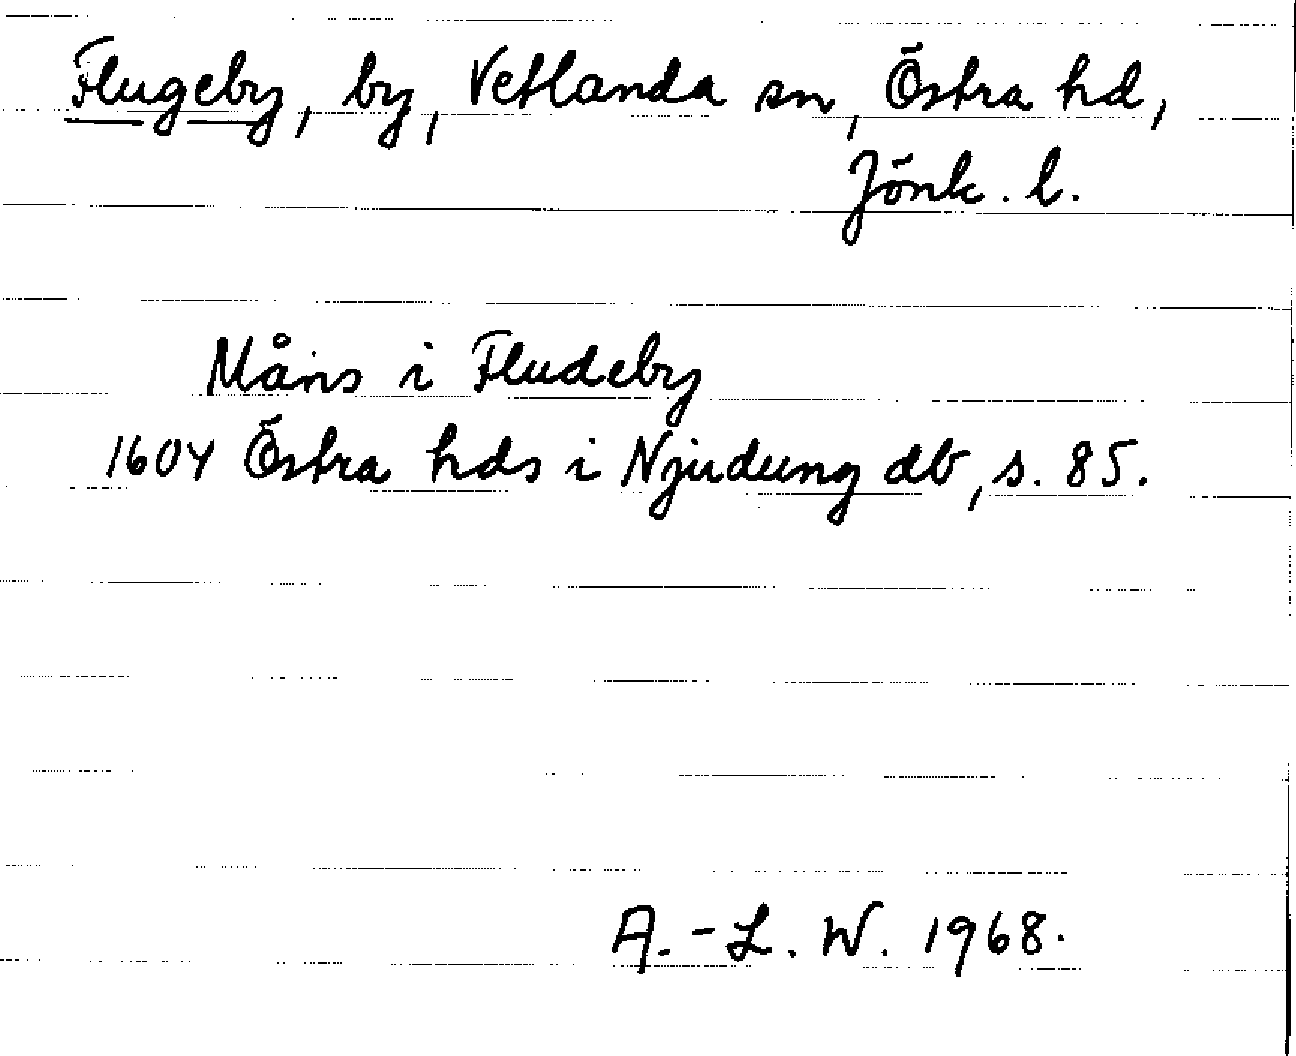 Flugeby, by, Vetlanda sn, Östra hd,
Jönk. l.
Måns i Fludeby
1604 Östra hds i Njudung db, s. 85.
A.-L. W. 1968.